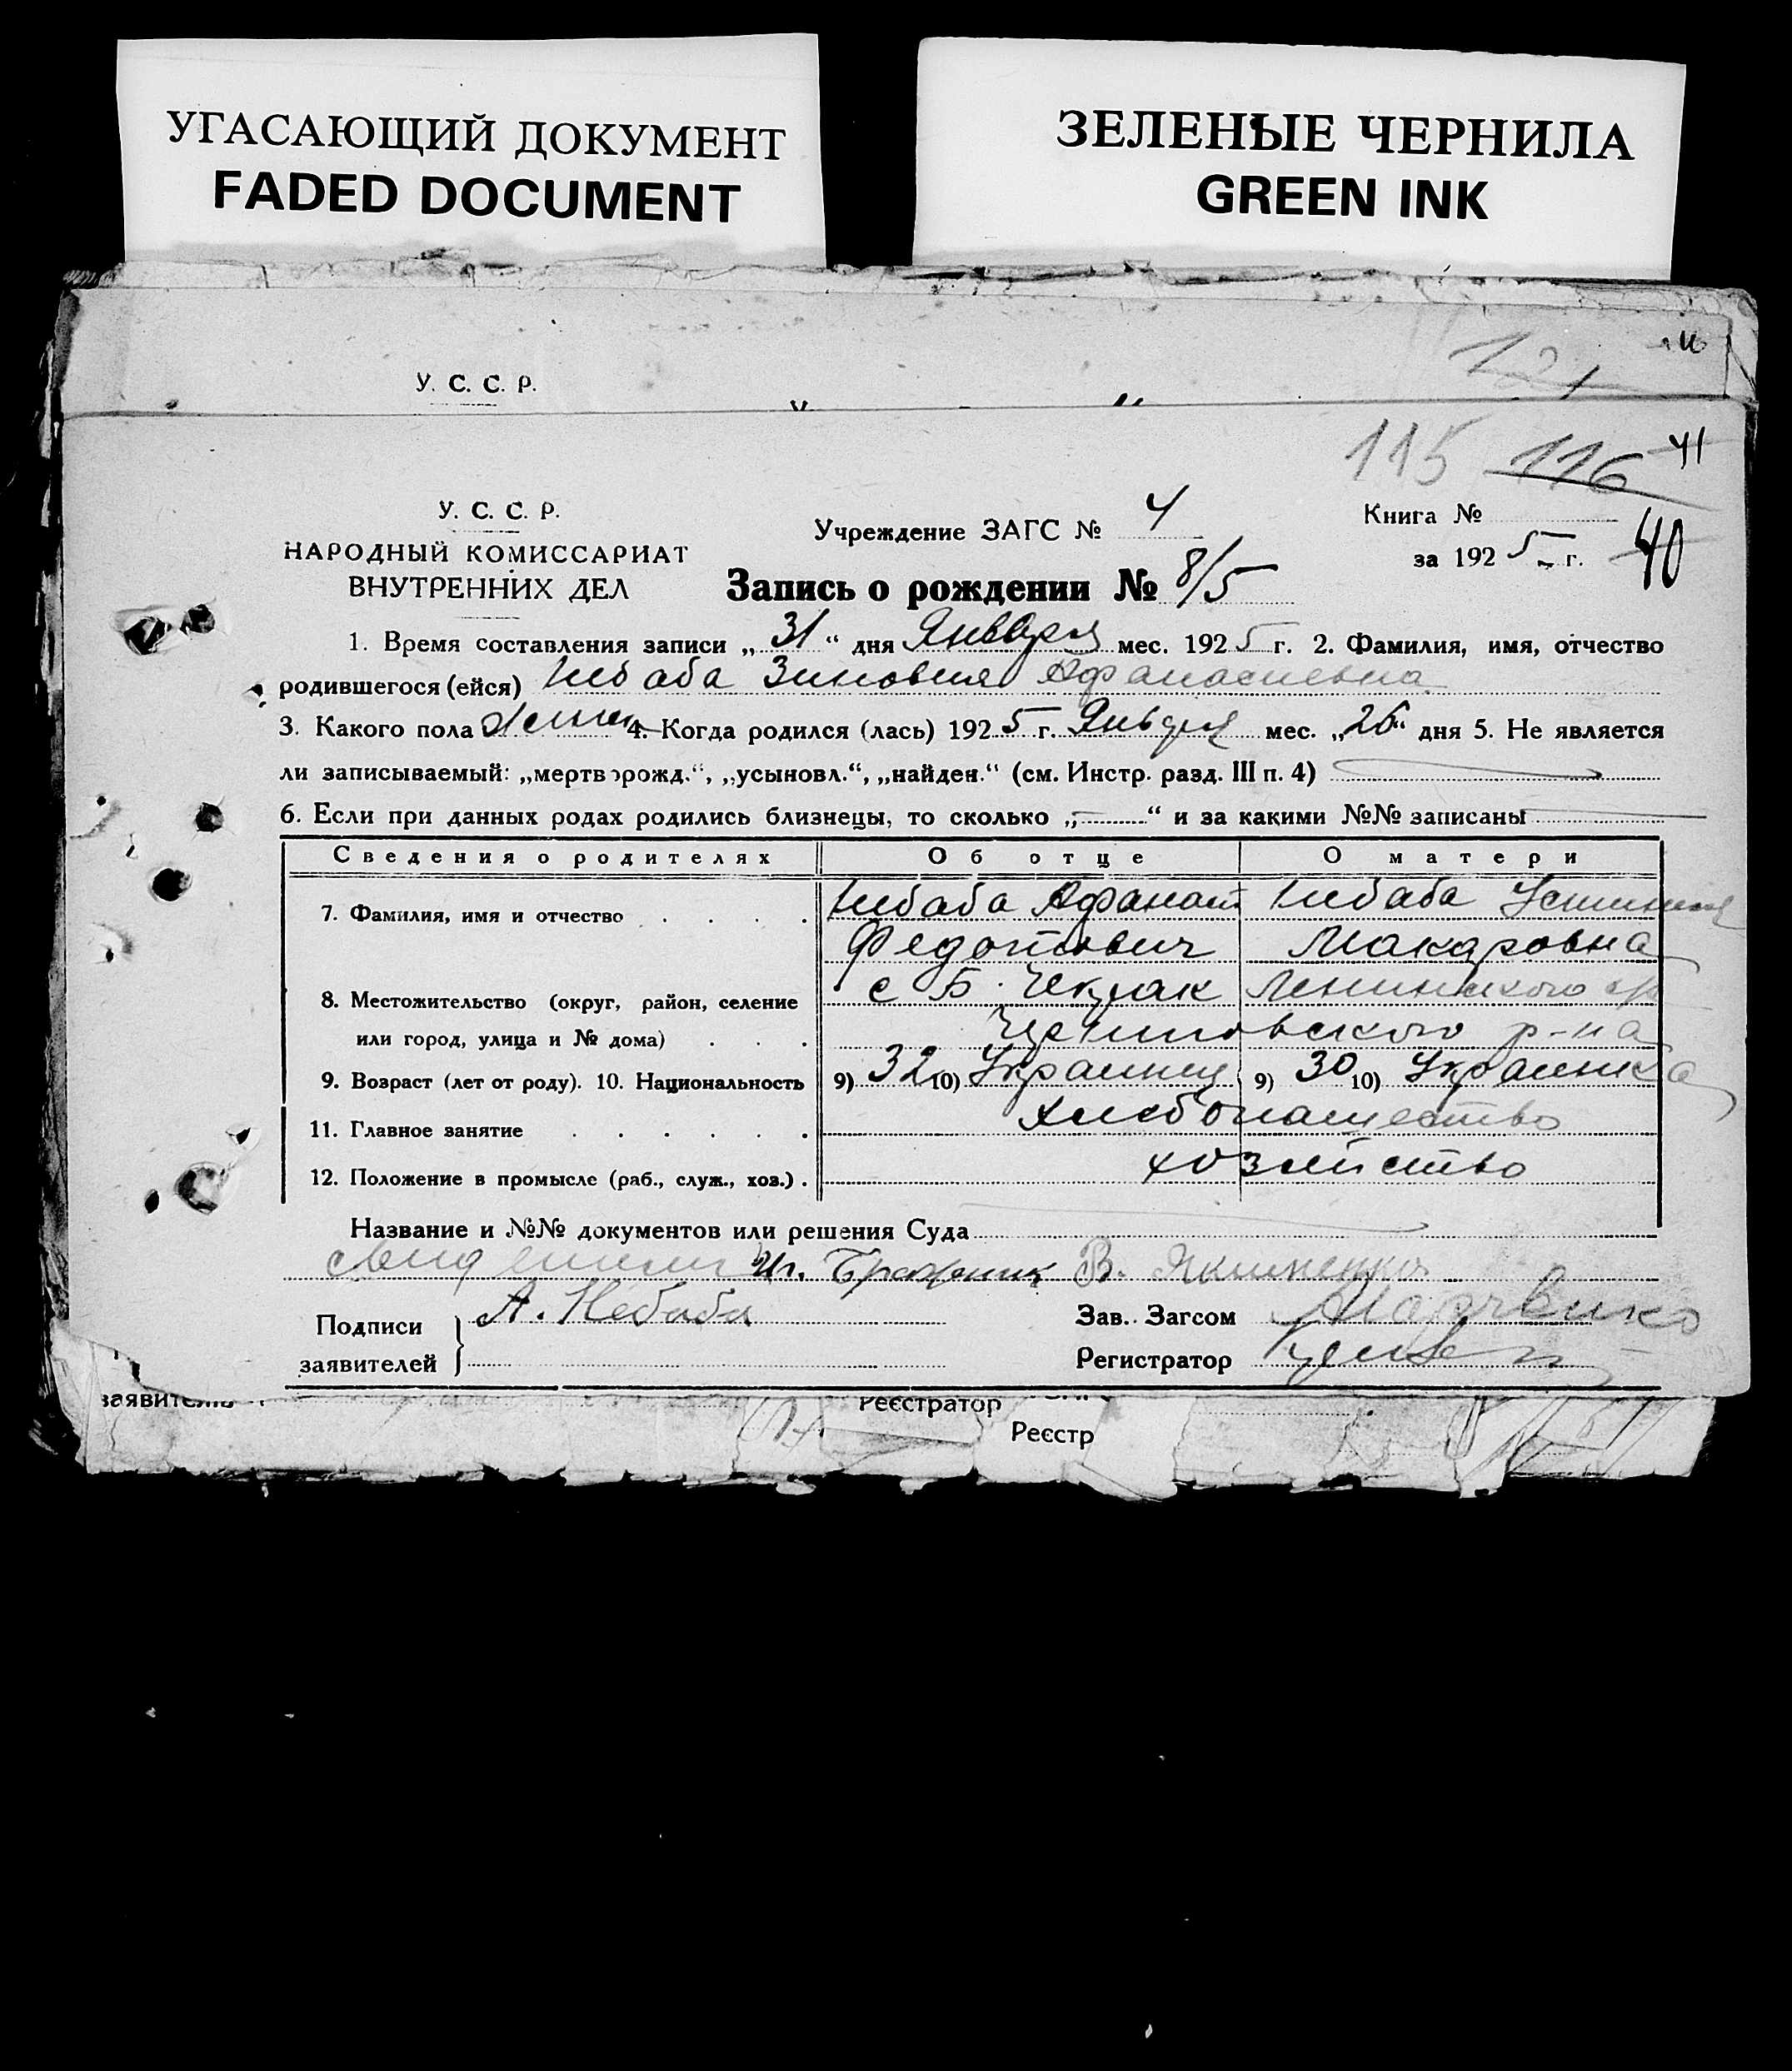 УГАСАЮЩИЙ ДОКУМЕНТ
FADED DOCUMENT
ЗЕЛЕНЫЕ ЧЕРНИЛА
GREEN INK
У. С. С. Р.
121
115 116 41
У. С. С. Р.
НАРОДНЫЙ КОМИССАРИАТ
ВНУТРЕННИХ ДЕЛ
Учреждение ЗАГС № 4
Книга №
за 1925 г. 40
Запись о рождении № 8/5
1. Время составления записи „31“ дня Января мес. 1925 г. 2. Фамилия, имя, отчество
родившегося (ейся) Небаба Зиновия Афанасиевна
3. Какого пола Женск 4. Когда родился (лась) 1925 г. Января мес. „26“ дня 5. Не является
ли записываемый: „мертворожд.“, „усыновл.“, „найден.“ (см. Инстр. разд. III п. 4)
6. Если при данных родах родились близнецы, то сколько „—“ и за какими №№ записаны
Сведения о родителях Об отце О матери
7. Фамилия, имя и отчество Небаба Афанасий Небаба Устиния
Федотович Макаровна
8. Местожительство (округ, район, селение с Б. Чекрак Ленинского
или город, улица и № дома) р-на
9. Возраст (лет от роду). 10. Национальность 9) 32 10) Украинец 9) 30 10) Украинка
11. Главное занятие хлебопашество
12. Положение в промысле (раб., служ., хоз.) хозяйство
Название и №№ документов или решения Суда
свидетели Ил. Бражник В. Якименко
Подписи А. Небаба Зав. Загсом Марченко
заявителей Регистратор
заявитель Реєстратор
Реєстр